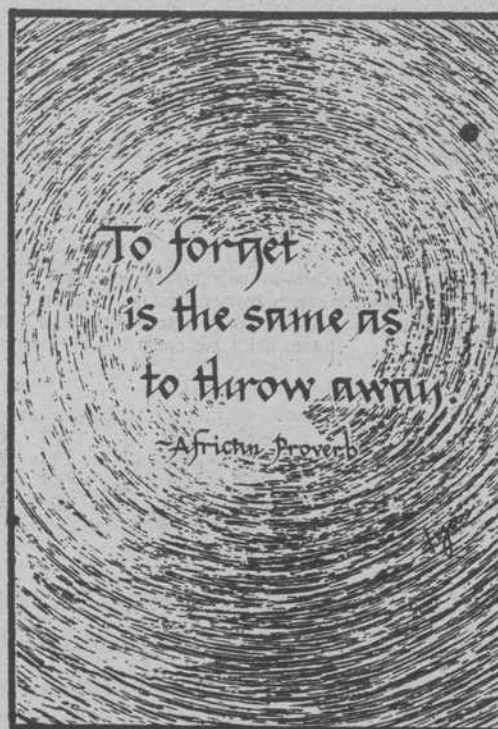 To forget
is the same as
to throw away.
~African Proverb